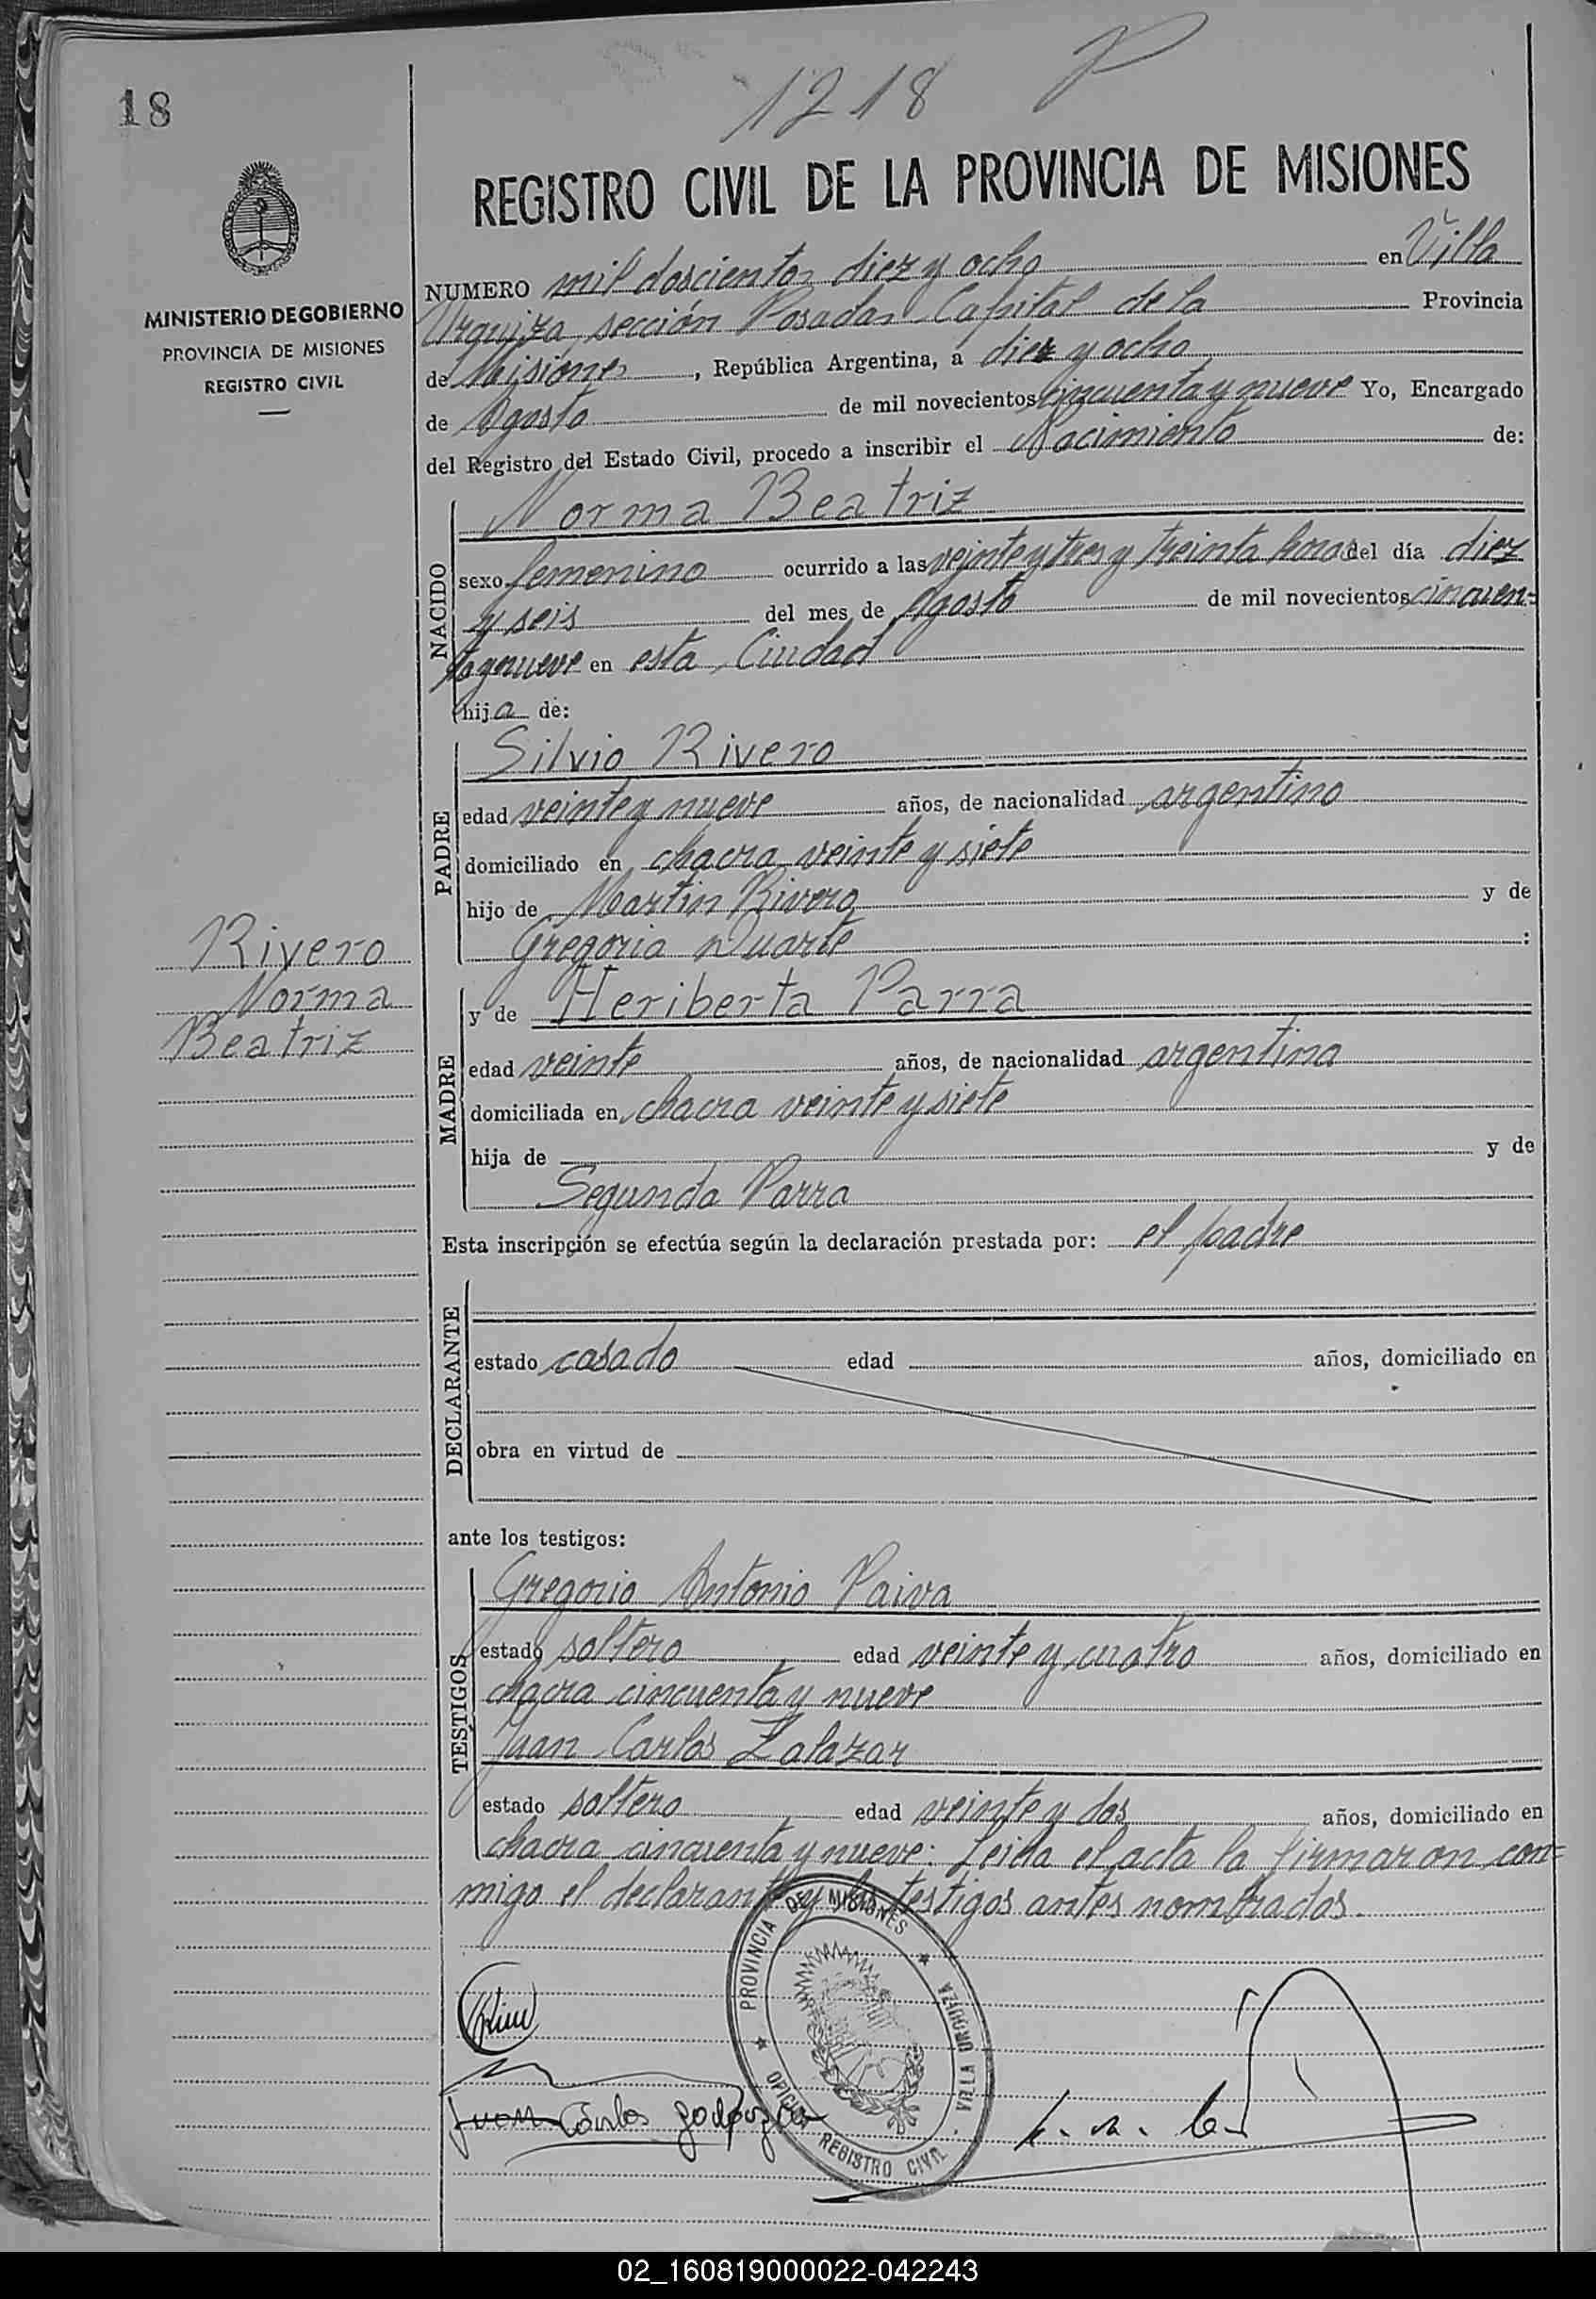 18
1218 P
REGISTRO CIVIL DE LA PROVINCIA DE MISIONES
MINISTERIO DE GOBIERNO
PROVINCIA DE MISIONES
REGISTRO CIVIL
NUMERO mil doscientos diez y ocho en Villa
Urquiza sección Posadas Capital de la Provincia
de Misiones, República Argentina, a diez y ocho
de Agosto de mil novecientos cincuenta y nueve Yo, Encargado
del Registro del Estado Civil, procedo a inscribir el Nacimiento de:
NACIDO
Norma Beatriz
sexo femenino ocurrido a las veinte y tres y treinta horas del día diez
y seis del mes de Agosto de mil novecientos cincuen-
ta y nueve en esta Ciudad
hija de:
PADRE
Silvio Rivero
edad veinte y nueve años, de nacionalidad argentino
domiciliado en chacra veinte y siete
hijo de Martin Rivero y de
Gregoria Duarte :
Rivero
Norma
Beatriz
MADRE
y de Heriberta Parra
edad veinte años, de nacionalidad argentina
domiciliada en chacra veinte y siete
hija de y de
Segunda Parra
Esta inscripción se efectúa según la declaración prestada por: el padre
DECLARANTE
estado casado edad años, domiciliado en
obra en virtud de
ante los testigos:
TESTIGOS
Gregorio Antonio Paiva
estado soltero edad veinte y cuatro años, domiciliado en
chacra cincuenta y nueve
Juan Carlos Zalazar
estado soltero edad veinte y dos años, domiciliado en
chacra cincuenta y nueve: Leída el acta la firmaron con-
migo el declarante y los testigos antes nombrados.
PROVINCIA DE MISIONES
VILLA URQUIZA
OFICINA REGISTRO CIVIL
Juan Carlos
02_160819000022-042243